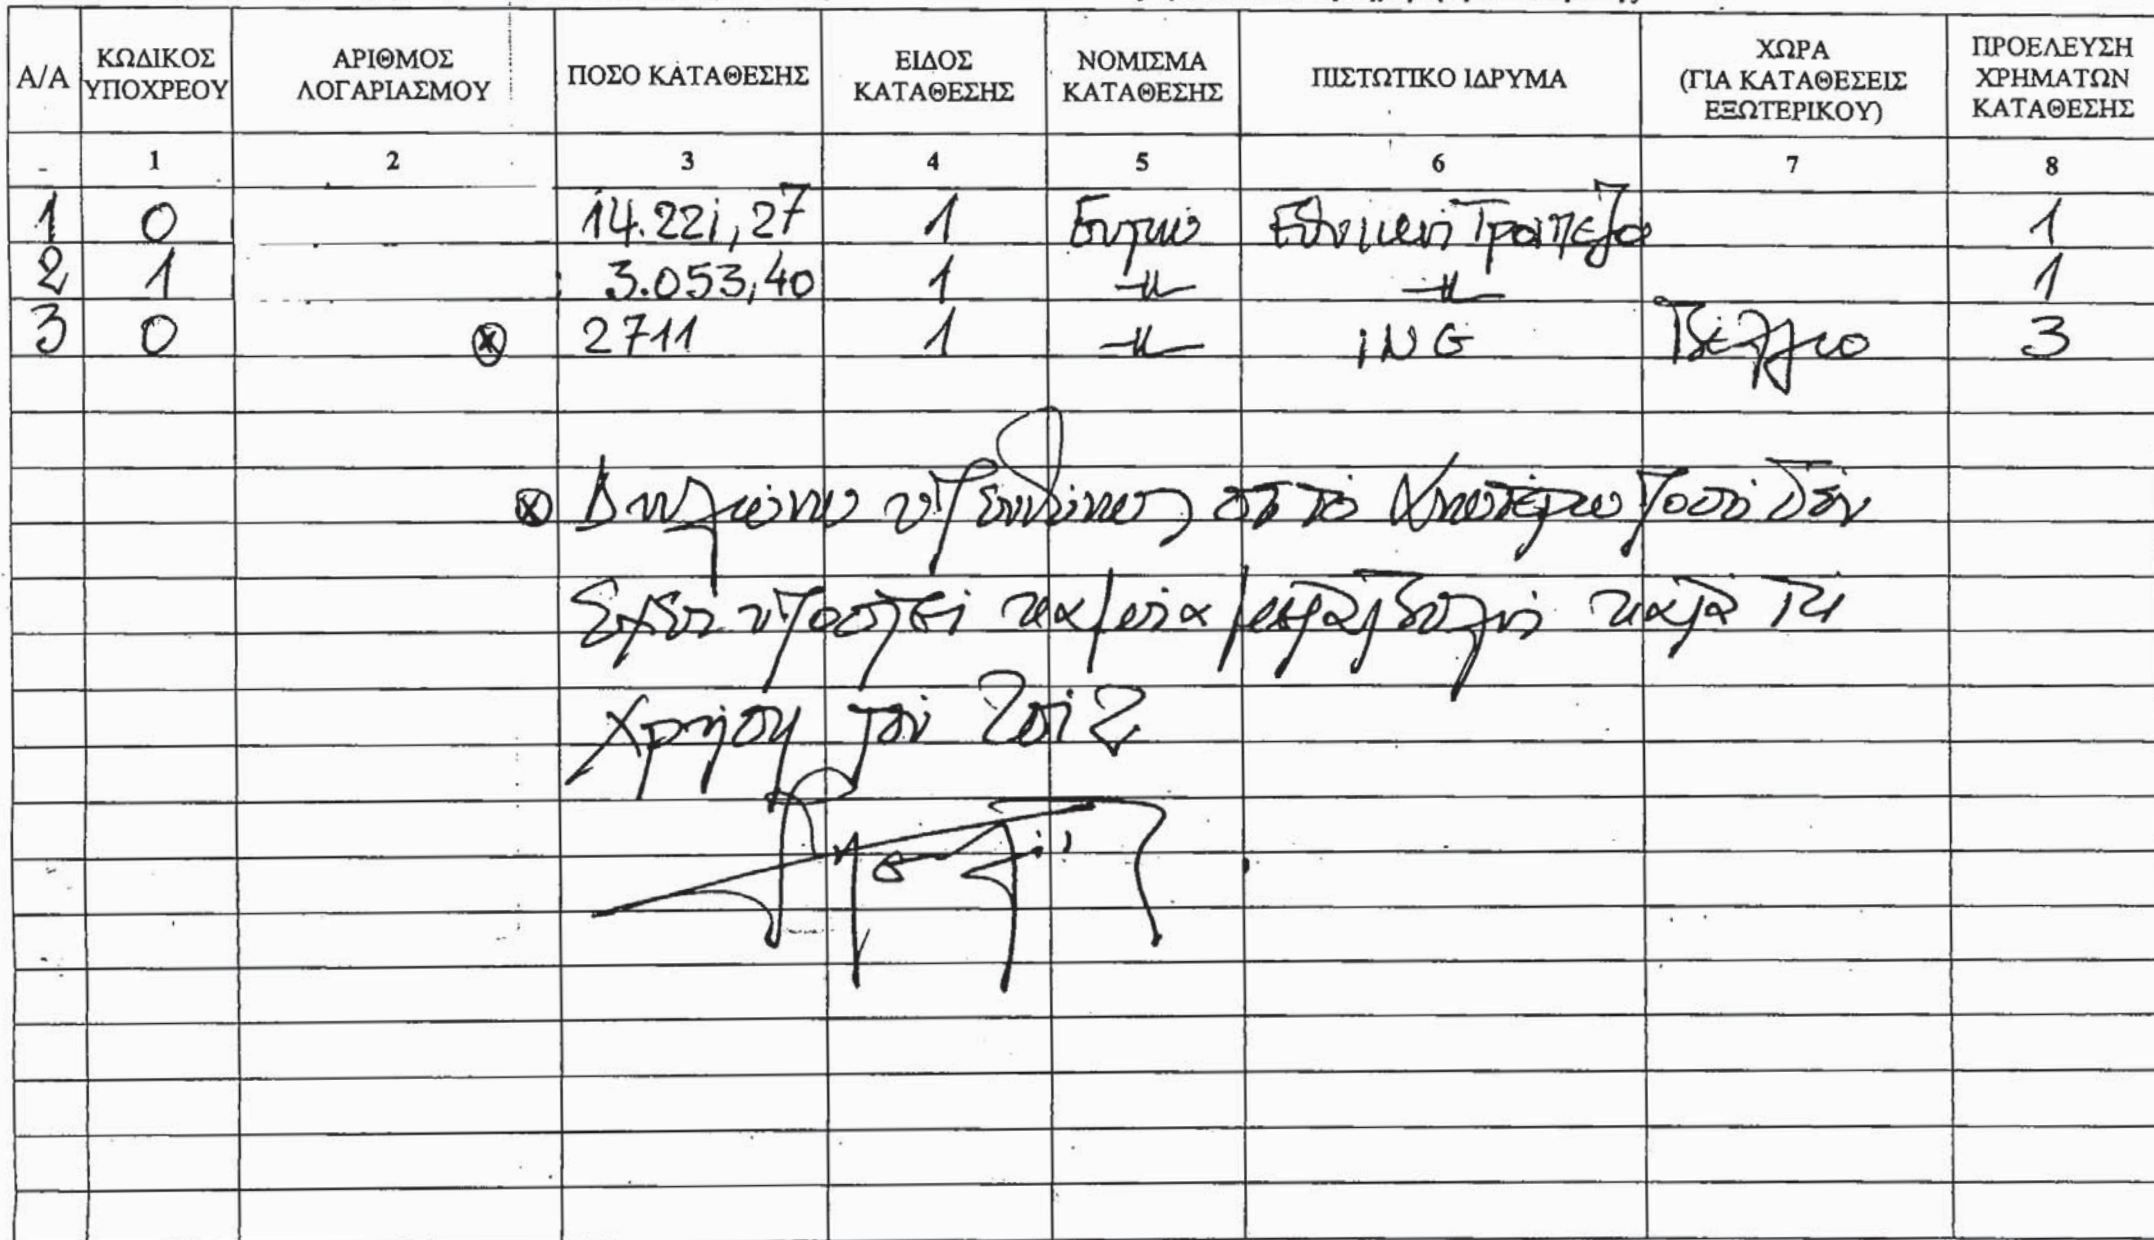 Α/Α ΚΩΔΙΚΟΣ ΥΠΟΧΡΕΟΥ ΑΡΙΘΜΟΣ ΛΟΓΑΡΙΑΣΜΟΥ ΠΟΣΟ ΚΑΤΑΘΕΣΗΣ ΕΙΔΟΣ ΚΑΤΑΘΕΣΗΣ ΝΟΜΙΣΜΑ ΚΑΤΑΘΕΣΗΣ ΠΙΣΤΩΤΙΚΟ ΙΔΡΥΜΑ ΧΩΡΑ (ΓΙΑ ΚΑΤΑΘΕΣΕΙΣ ΕΞΩΤΕΡΙΚΟΥ) ΠΡΟΕΛΕΥΣΗ ΧΡΗΜΑΤΩΝ ΚΑΤΑΘΕΣΗΣ
1 2 3 4 5 6 7 8
1 0 14.221,27 1 Ευρώ Εθνική Τράπεζα 1
2 1 3.053,40 1 -//- -//- 1
3 0 ⊗ 2711 1 -//- ING Βέλγιο 3
⊗ Δηλώνω υπευθύνως ότι το ποσό δεν
έχει υποστεί καμμία μεταβολή κατά τη
χρήση του 2012